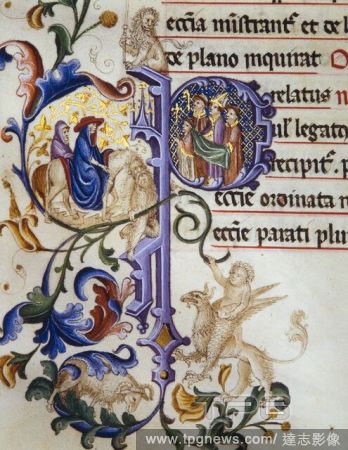 ecc̄ia ministrant᷑ et de l
de plano inquirat
Prelatus
uil᷑ legatus
recipit᷑. p
eccīe ordinata n
eccīe parati plu
TPG
www.tpgnews.com / 達志影像